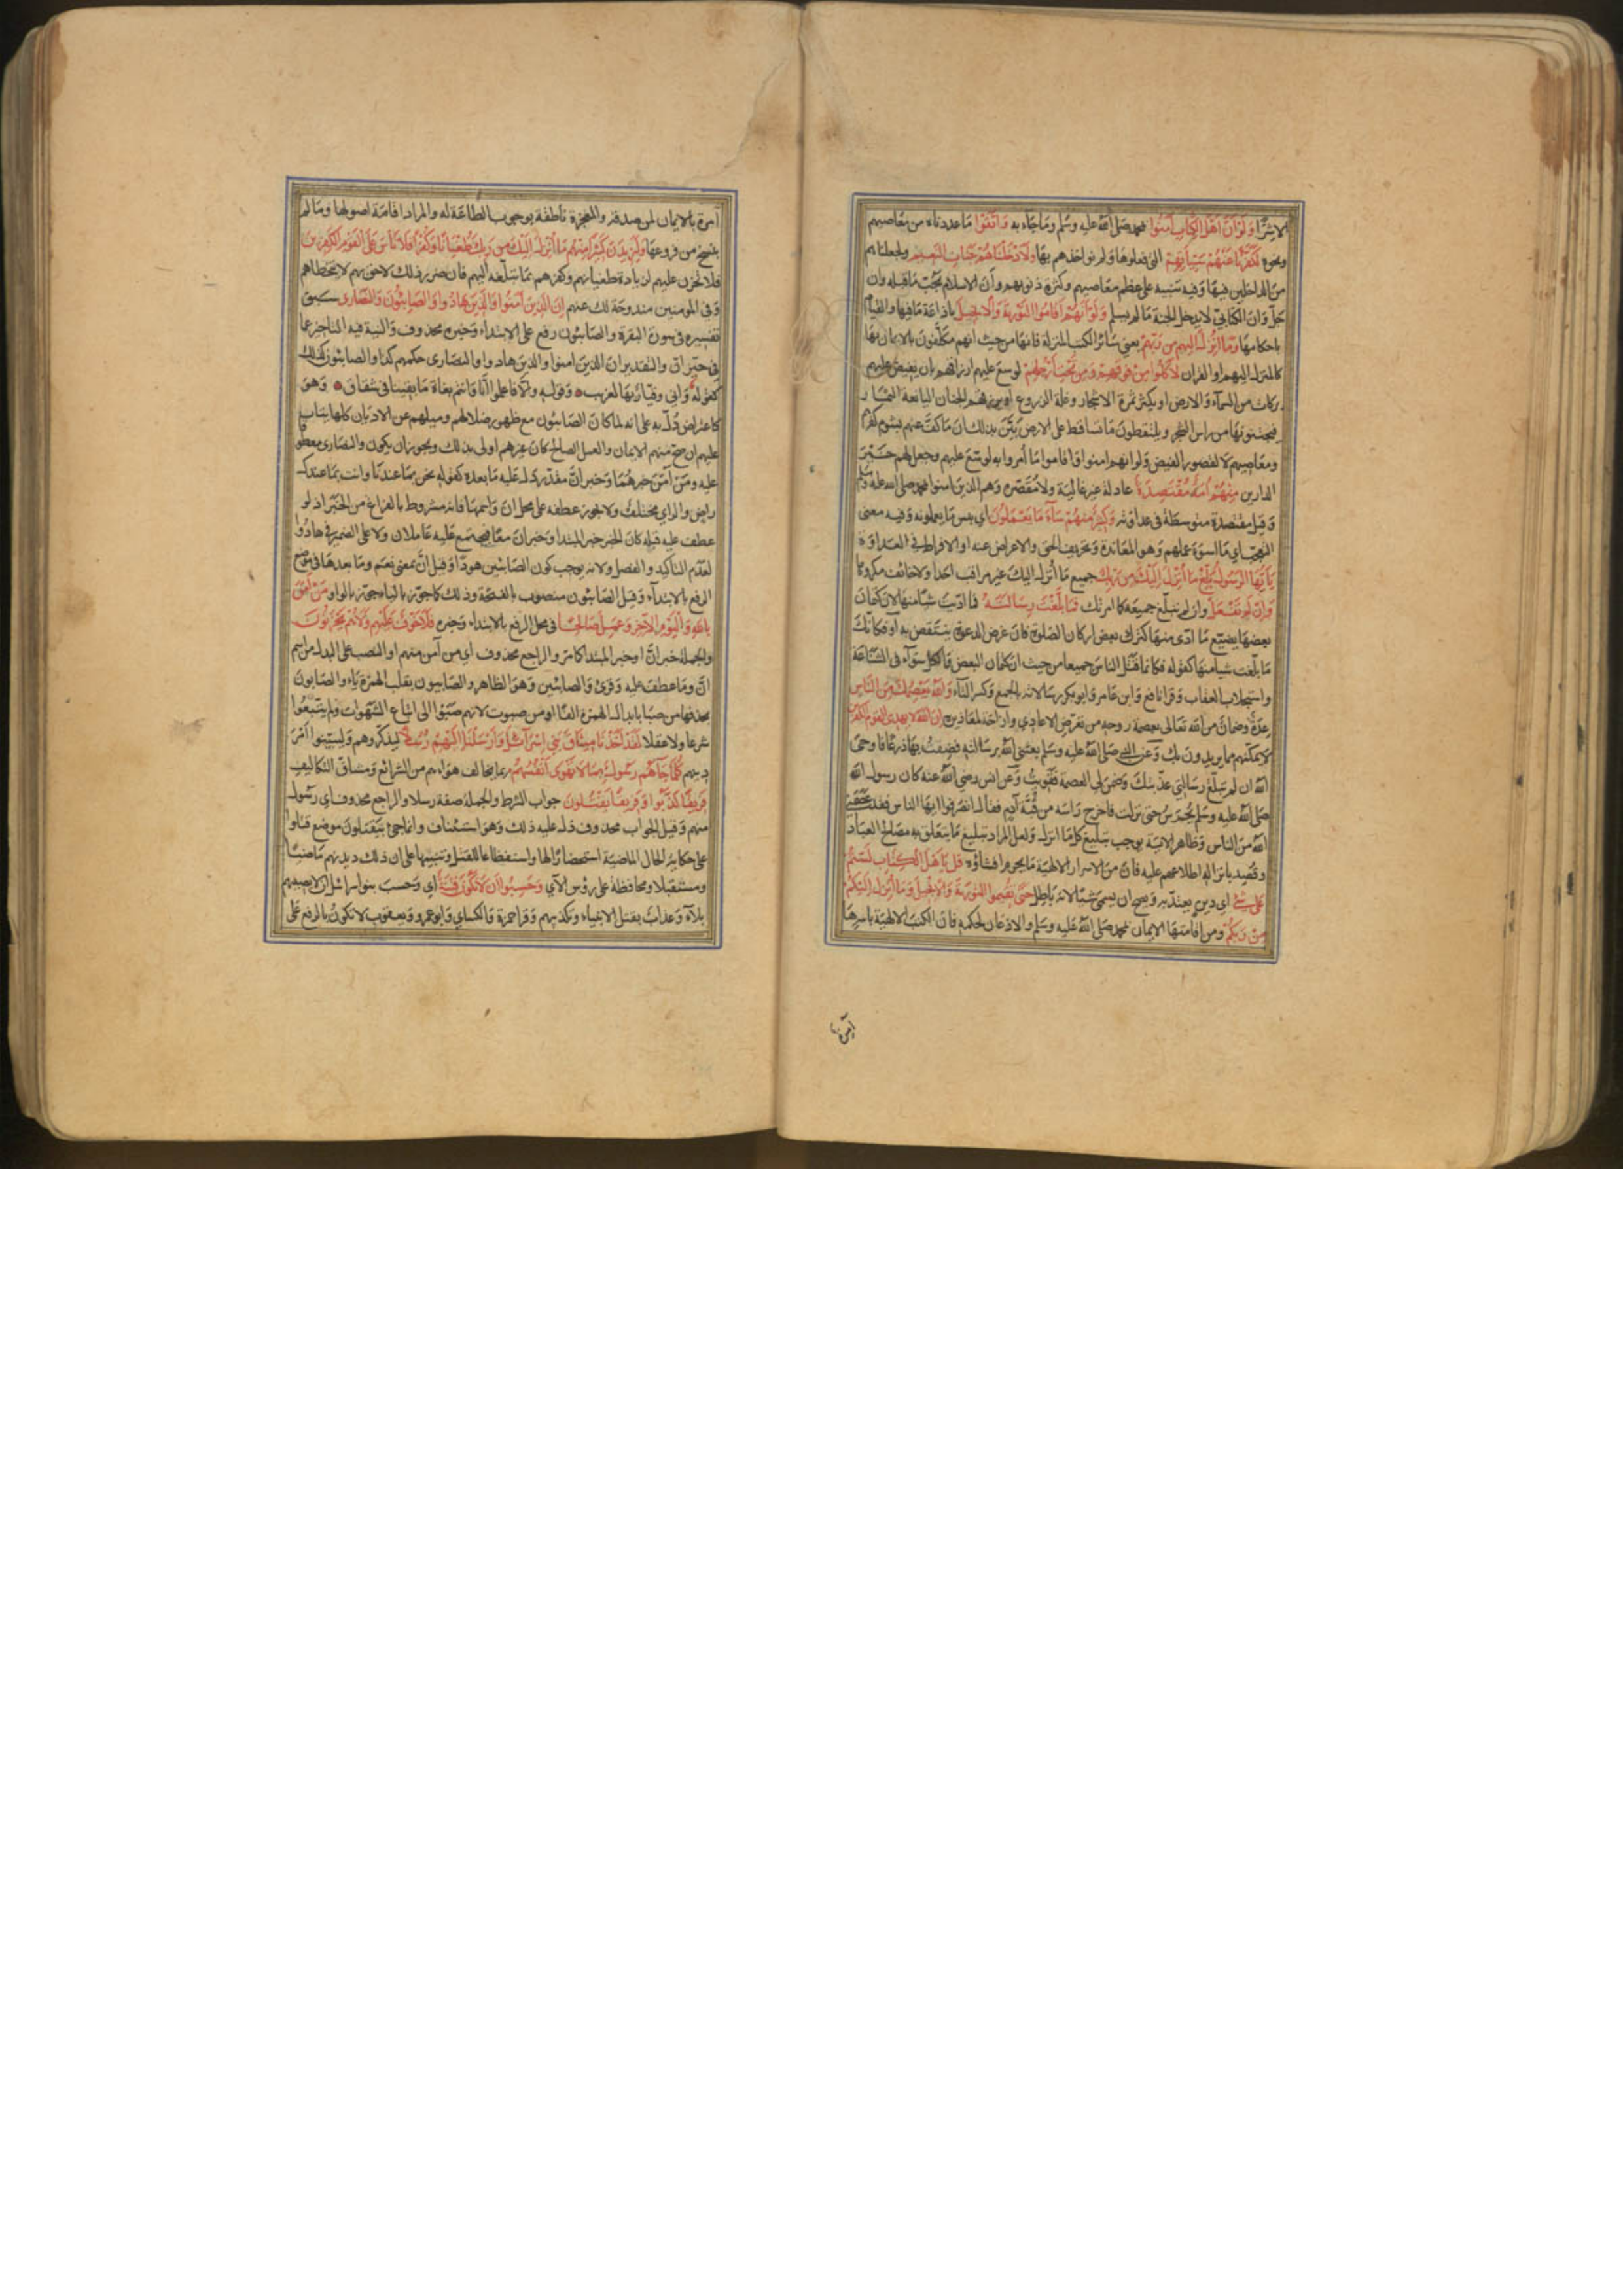 الا شرا ولو ان اهل الكتاب آمنوا بمحمد صلى الله عليه وسلم وما جاء به واتقوا ما عددنا من معاصيهم
ونحوه لكفرنا عنهم سيئاتهم التي فعلوها ولم نؤاخذهم بها ولادخلناهم جنات النعيم ولجعلناهم
من الداخلين فيها وفيه تنبيه على عظم معاصيهم وكثرة ذنوبهم وان الاسلام يجب ما قبله وان
جل وان الكتابي لا يدخل الجنة ما لم يسلم ولو انهم اقاموا التورية والانجيل باذاعة ما فيها والقيام
باحكامها وما انزل اليهم من ربهم يعني سائر الكتب المنزلة فانها من حيث انهم مكلفون بالايمان بها
كالمنزل اليهم او القران لاكلوا من فوقهم ومن تحت ارجلهم لوسع عليهم ارزاقهم بان يفيض عليهم
بركات من السمآء والارض او يكثر ثمرة الاشجار وغلة الزروع او يرزقهم الجنان اليانعة الثمار
فيجتنونها من راس الشجر ويلتقطون ما تساقط على الارض بين بذلك ان ما كف عنهم بشوم كفرهم
ومعاصيهم لا لقصور الفيض ولو انهم امنوا واقاموا ما أمروا به لوسع عليهم وجعل لهم خير
الدارين منهم امة مقتصدة عادلة غير غالية ولا مقصرة وهم الذين امنوا بمحمد صلى الله عليه وسلم
وقيل مقتصدة متوسطة في عداوته وكثير منهم سآء ما يعملون اي بئس ما يعملونه وفيه معنى
التعجب اي ما اسوء عملهم وهو المعاندة وتحريف الحق والاعراض عنه او الافراط في العداوة
يا ايها الرسول بلغ ما انزل اليك من ربك جميع ما انزل اليك غير مراقب احدا ولا خائف مكروها
وان لم تفعل وان لم تبلغ جميعه كما امرتك فما بلغت رسالته فما اديت شيا منها لان كتمان
بعضها يضيع ما ادى منها كترك بعض اركان الصلوة فان غرض الدعوة ينتقص به او فكانك
ما بلغت شيا منها كقوله فكانما قتل الناس جميعا من حيث ان كتمان البعض والكل سوآء في الشناعة
واستجلاب العقاب وقرا نافع وابن عامر وابو بكر رسالاته بالجمع وكسر التآء والله يعصمك من الناس
عدة وضمان من الله تعالى بعصمة روحه من تعرض الاعادي وازاحة لمعاذيره ان الله لا يهدي القوم الكفرين
لا يمكنهم مما يريدون بك وعن النبي صلى الله عليه وسلم بعثني الله برسالته فضقت بها ذرعا فاوحى
الله ان لم تبلغ رسالتي عذبتك وضمن لي العصمة فقويت وعن انس رضي الله عنه كان رسول الله
صلى الله عليه وسلم يحرس حتى نزلت فاخرج راسه من قبة آدم فقال انصرفوا ايها الناس فقد عصمني
الله من الناس وظاهر الاية يوجب تبليغ كل ما انزل ولعل المراد تبليغ ما يتعلق به مصالح العباد
وقصد بانزاله اطلاعهم عليه فان من الاسرار الالهية ما يحرم افشاؤه قل يا اهل الكتاب لستم
على شئ اي دين يعتد به ويصح ان يسمى شيا لانه باطل حتى تقيموا التورية والانجيل وما انزل اليكم
من ربكم ومن اقامتها الايمان بمحمد صلى الله عليه وسلم والاذعان لحكمه فان الكتب الالهية باسرها
آمرة
آمرة بالايمان لمن صدقه والمعجزة ناطقة بوجوب الطاعة له والمراد اقامة اصولها وما لم
ينسخ من فروعها وليزيدن كثيرا منهم ما انزل اليك من ربك طغيانا وكفرا فلا تاس على القوم الكفرين
فلا تحزن عليهم لزيادة طغيانهم وكفرهم بما تبلغه اليهم فان ضرر ذلك لاحق بهم لا يتخطاهم
وفي المومنين مندوحة لك عنهم ان الذين آمنوا والذين هادوا والصابئون والنصارى سبق
تفسيره في سورة البقرة والصابئون رفع على الابتداء وخبره محذوف والنية فيه التاخير عما
في حيز ان والتقدير ان الذين امنوا والذين هادوا والنصارى حكمهم كذا والصابئون كذلك
كقوله فاني وقيار بها لغريب وقوله والا فاعلموا انا وانتم بغاة ما بقينا في شقاق وهو
كاعتراض دل به على انه لما كان الصابئون مع ظهور ضلالهم وميلهم عن الاديان كلها يتاب
عليهم ان صح منهم الايمان والعمل الصالح كان غيرهم اولى بذلك ويجوز ان يكون والنصارى معطوفا
عليه ومن آمن خبرهما وخبر ان مقدر دل عليه ما بعده كقوله نحن بما عندنا وانت بما عندك
راض والراي مختلف ولا يجوز عطفه على محل ان واسمها فانه مشروط بالفراغ من الخبر اذ لو
عطف عليه قبله كان الخبر خبر المبتدا وخبر ان معا فيجتمع عليه عاملان ولا على الضمير في هادوا
لعدم التاكيد والفصل ولانه يوجب كون الصابئين هودا وقيل ان بمعنى نعم وما بعدها في موضع
الرفع بالابتدآء وقيل الصابئون منصوب بالفتحة وذلك كما جوز بالياء جوز بالواو من آمن
بالله واليوم الآخر وعمل صالحا في محل الرفع بالابتداء وخبره فلا خوف عليهم ولا هم يحزنون
والجملة خبر ان او خبر المبتدا كما مر والراجع محذوف اي من آمن منهم او النصب على البدل من اسم
ان وما عطف عليه وقرئ والصابئين وهو الظاهر والصابيون بقلب الهمزة ياء والصابون
بحذفها من صبا بابدال الهمزة الفا او من صبوت لانهم صبوا الى اتباع الشهوات ولم يتبعوا
شرعا ولا عقلا لقد اخذنا ميثاق بني اسرآئيل وارسلنا اليهم رسلا ليذكروهم وليبينوا امر
دينهم كلما جاءهم رسول بما لا تهوى انفسهم بما يخالف هواهم من الشرائع ومشاق التكاليف
فريقا كذبوا وفريقا يقتلون جواب الشرط والجملة صفة رسلا والراجع محذوف اي رسول
منهم وقيل الجواب محذوف دل عليه ذلك وهو استئناف وانما جئ بيقتلون موضع قتلوا
على حكاية الحال الماضية استحضارا لها واستفظاعا للقتل وتنبيها على ان ذلك ديدنهم ماضيا
ومستقبلا ومحافظة على رؤس الآي وحسبوا ان لا تكون فتنة اي وحسب بنو اسرائيل ان لا يصيبهم
بلآء وعذاب بقتل الانبياء وتكذيبهم وقرا حمزة والكساي وابو عمرو ويعقوب لا تكون بالرفع على